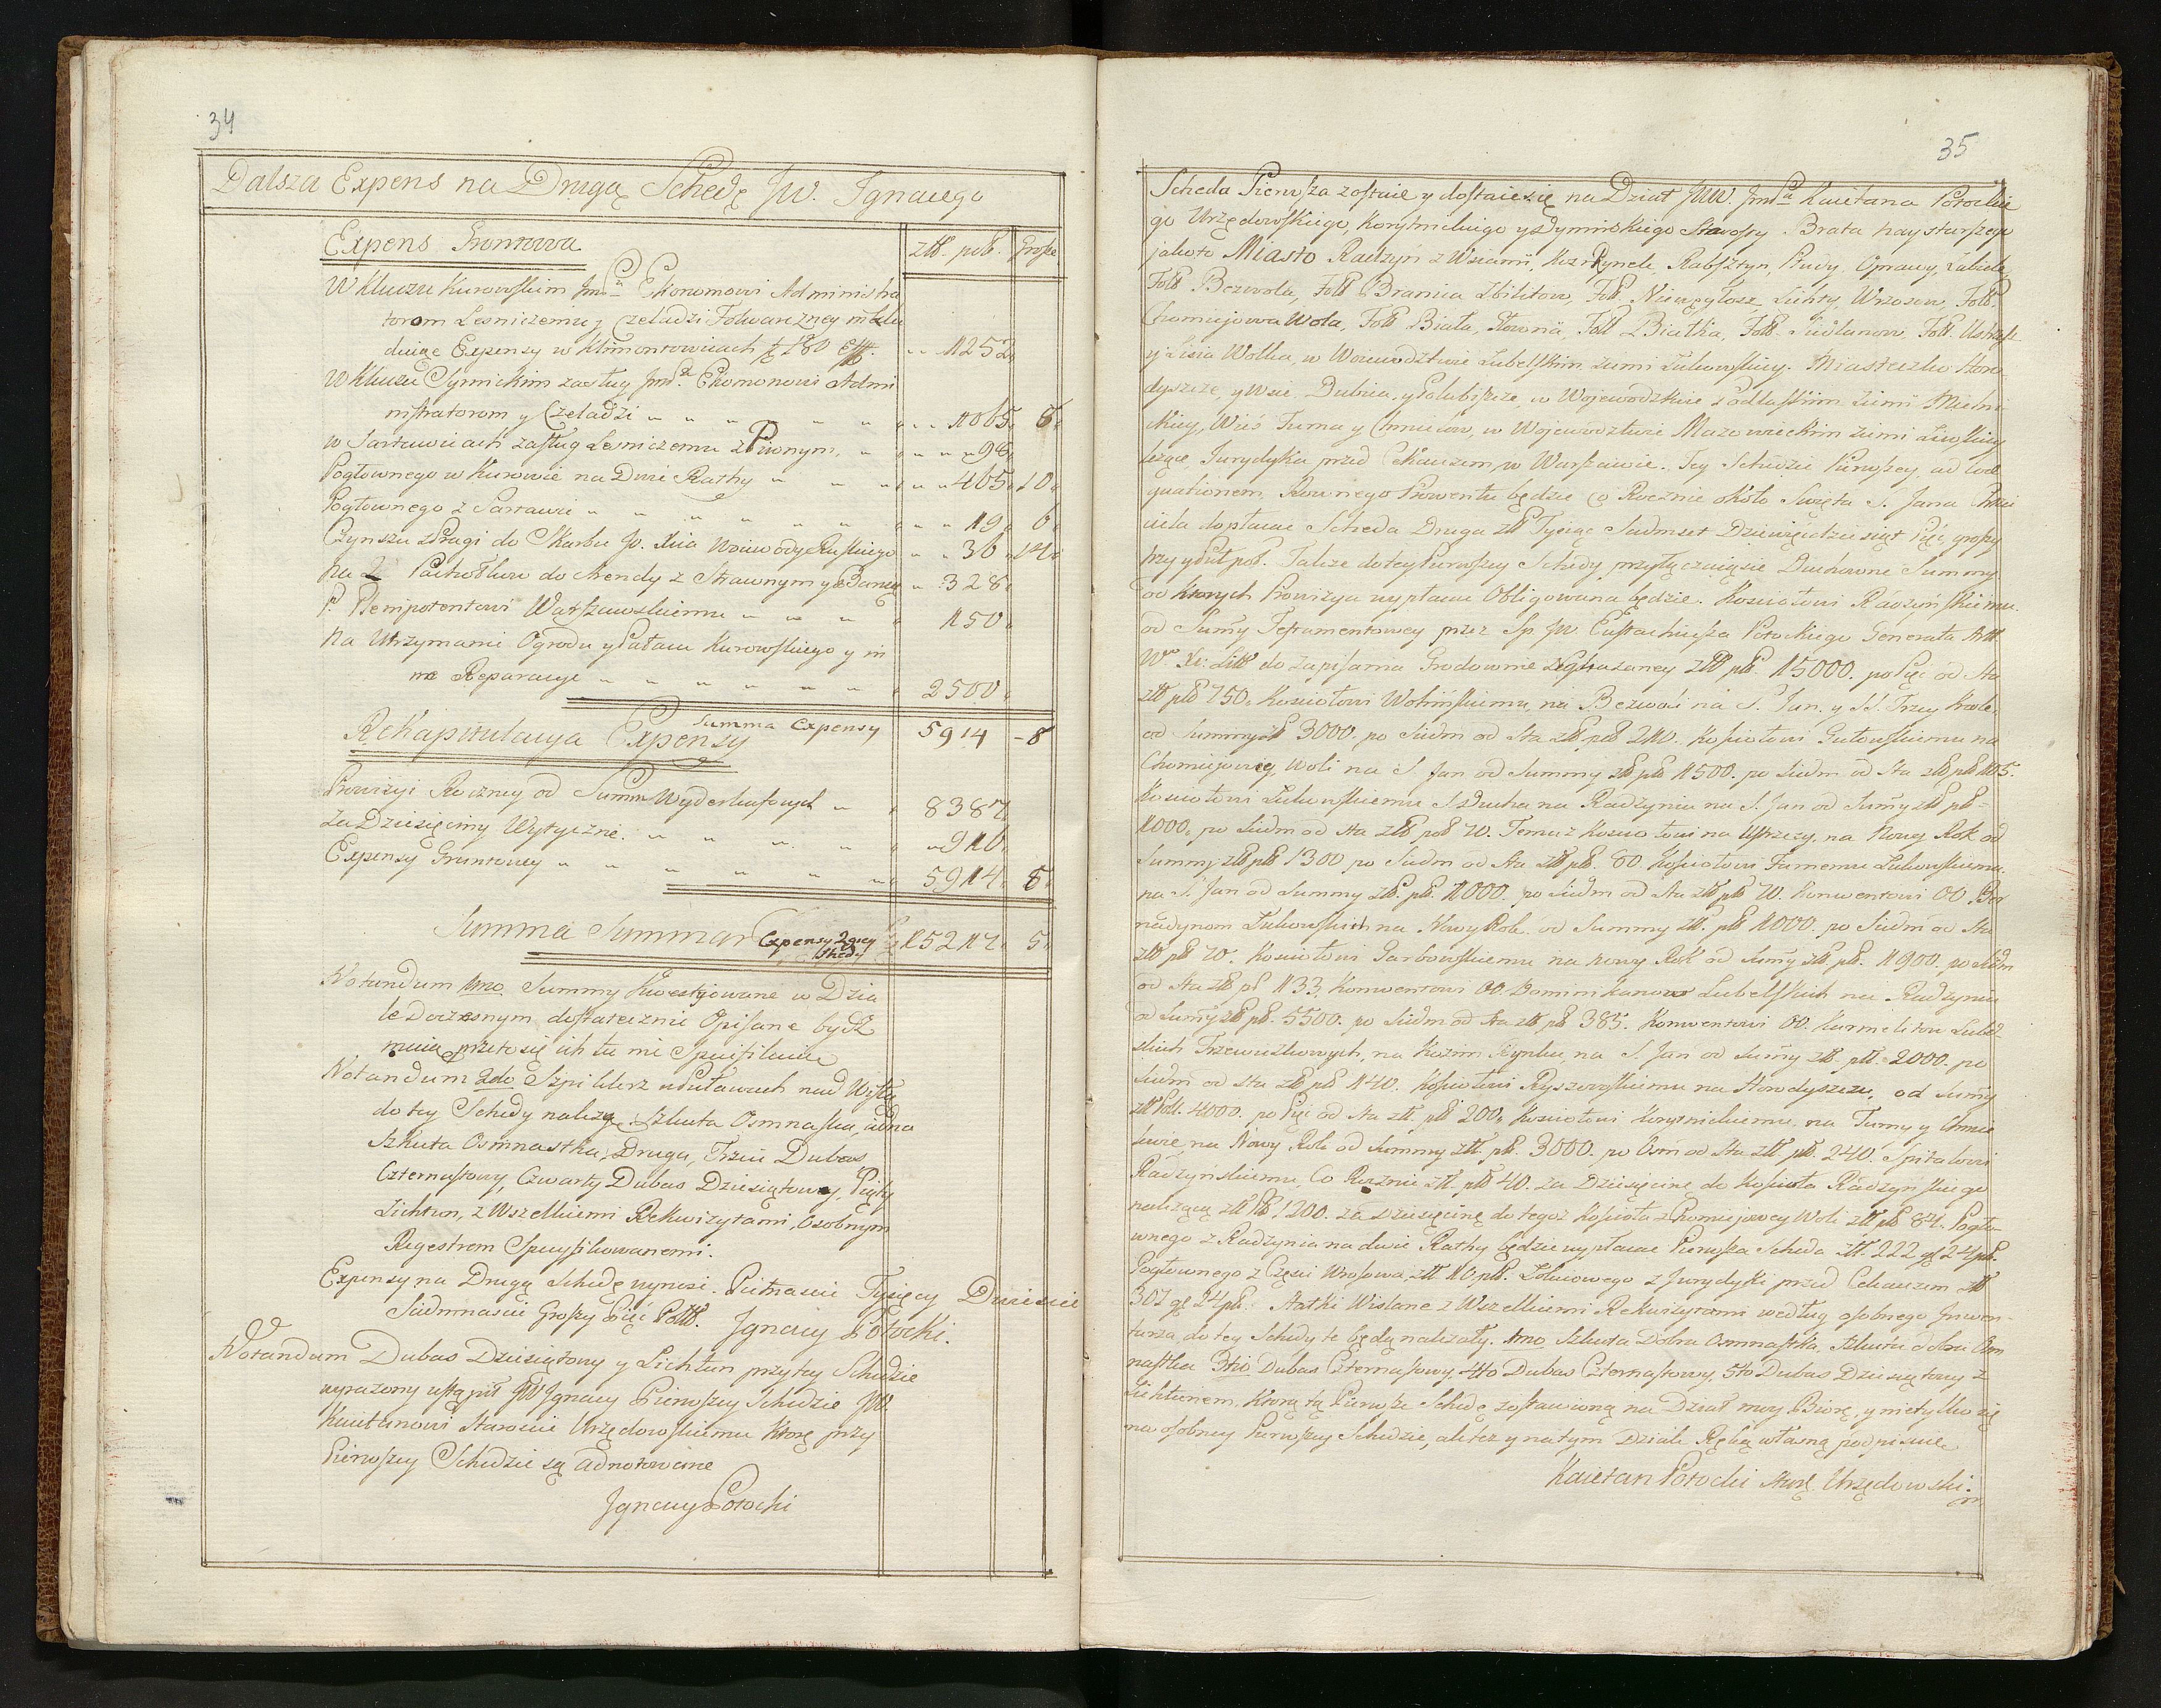 34
Dalsza Expens na Drugą Schedę JW. Ignacego
Expens Grontowa
złł. pol. Grosze
W Kluczu Kurowskim Jmć Pu Ekonomowi Administra
torom Lesniczemu y Czeladzi Folwarczney
duiąc Expensy w Klimontowicach 1252
W Kluczu Synnickim zasług Jmd. Ekonomowi Admi
nistratorom y Czeladzi 1065 8
w Sartawicach zasług Lesniczemu z Piwnym 98
Pogłownego w Kurowie na Dwie Rathy 465 10
Pogłownego z Sartawic 19 6
Czynszu z Pragi do Skarbu Jo. Xcia Woiewody Ruskiego 36 14
na 2 Pachołkow do Arendy z Strawnym y Barwą 328
P. Plenipotentowi Warszawskiemu 150
Na Utrzymanie Ogrodu y Pałacu Kurowskiego y in
ne Reparacye 2500
Summa Expensy 5914 - 8
Rekapitulacya Expensy
Prowizyi Roczney od Summ Wyderkafowych 8387
Za Dziesięciny Wytyczne 916
Expensy Gruntowey 5914 8
Summa Summar Expensy 2giey Schedy 15217 5
Notandum 1mo Summy Kwestyowane w Dzia
le Doczesnym dostatecznie Opisane bydź
muią przeto się ich tu nie Specifikuie
Notandum 2do Szpiklerz w Puławach nad Wisłą
do tey Schedy należą. Szkuta Osmnastka, iedna
Szkuta Osmnastka, Druga, Trzeci Dubas
Czternastowy, Czwarty Dubas Dziesiątowy, Piąty
Lichtun, z Wszelkiemi Rekwizytami, Osobnym
Regestrem Specyfikowanemi.
Expensy na Drugą Schedę wynosi Pietnascie Tysięcy Dwiescie
Siedmnascie Groszy Pięć Poll. Ignacy Potocki.
Notandum Dubas Dziesiątowy y Lichtun przy tey Schedzie
wyrazony ustąpił JW Ignacy Pierwszey Schedzie JW
Kaietanowi Staroscie Urzędowskiemu Które przy
Pierwszey Schedzie są adnotowane
Ignacy Potocki
35
Scheda Pierwsza zostaie y dostaie się na Dział JWW. Jmć Pa Kaietana Potockie
go Urzędowskiego, Korytnickiego y Dyminskiego Starosty Brata naystarszego
jakoto Miasto Radzyń z Wsiami, Kozirynek, Rabsztyn, Płudy, Oprawy, Zabiele,
Folk Bezwola, Folk Branica Zbilitow, Folk Niewęgłosz, Lichty, Wrzosow, Folk
Chomiejowa Wola, Folk Biała, Stawna, Folk Białka, Folk Siedlanow, Folk Ustrzesz
y Lisia Wolka, w Woiewodztwie Lubelskim ziemi Łukowskiey. Miasteczko Horo
dyszcze, y Wsie Dubica, y Polubicze, w Wojewodztwie Podlaskim Ziemi Mielni
ckiey, Wieś Tuma y Chmielow, w Wojewodztwie Mazowieckim ziemi Liwskiey
leżące, Jurydyka przed Cekauzem, w Warszawie. Tey Schedzie Pierwszey ad coæ
quationem, Rownego Prowentu będzie Co Rocznie około Swięta S. Jana Chrzci
ciela dopłacac Scheda Druga złł Tysiąc Siedmset Dziewięcdziesiąt Pięć, groszy
trzy y Puł pol. Także do tey Pierwszey Schedy przyłączaiąsie Duchowne Summy
od Ktorych Prowizya wypłacac Obligowana będzie. Kosciołowi Radzyńskiemu
od Sumy Testamentowey przez Sp. JW. Eustachiusza Potockiego Generała Artt
Wo. Xo: Litt do zapisania Grodownie zgłaszaney złł pll. 15000. po Pięć od Sta
złł pll 750. Kosciołowi Wohińskiemu, na Bezwoli na S. Jan. y SS. Trzey Krole,
od Summy złł 3000. po Siedm od Sta złł poll 210. Kościołowi Gutowskiemu na
Chomiejowey, Woli na S. Jan od Summy złł pll 1500. po Siedm od Sta złł pll 105.
Kosciołowi Łukowskiemu S. Ducha na Radzyniu na S. Jan od Sumy złł pll
1000, po Siedm od sta złł poll 70. Temuż Kosciołowi na Ustrzeszy, na Nowy Rok od
Summy złł pll 1300 po Siedm od Sta złł pll. 80. Kościołowi Farnemu Łukowskiemu
na S. Jan od Summy złł. pll. 1000. po Siedm od Sta złł pll 70. Konwentowi OO. Ber
nadynom Łukowskich na Nowy Rok od Summy złł. pll 1000. po Siedm od Sta
złł pll 70. Kosciołowi Garbowskiemu na nowy Rok od Sumy złł pll. 1900. po Siedm
od Sta złł pl 133. Konwentowi OO. Dominikanow Lubelskich na Radzyniu
od Sumy złł pll. 5500. po Siedm od Sta złł pll 385. Konwentowi OO. Karmelitow Lubel
skich Trzewiczkowych, na Kozim Rynku na S. Jan od Sumy złł. pll. 2000. po
Siedm od sta złł pll 140. Kościołowi Ryszowskiemu na Horodyszczu, od Sumy
złł Poll. 4000. po Pięć od Sta złł. pll 200. Kosciołowi Korytnickiemu, na Tumy y Chmie
lewie na Nowy Rok od Summy złł pll. 3000. po Osm od Sta złł pll 240. Spitalowi
Radzyńskiemu, Co Rocznie złł. pll 40. za Dziesięcinę do Kościoła Radzyńskiego
należącą złł Pll 1200. za Dziesięcinę do tegoż Kościoła z Chomiejowey Woli złł pll 84. Pogło
wnego z Radzynia na dwie Rathy będzie wypłacac Pierwsza Scheda złł. 222 gl 24 pll.
Pogłownego z Części Wrosowa, złł 10 pll. Łokciowego z Jurydyki przed Cekauzem złł
307 gl 24 pll. Statki Wislane z Wszelkiemi Rekwizytami według osobnego Inwen
tarza, do tey Schedy te będą należały. 1mo Szkuta Dobra Osmnastka, Szkuta dobra Osm
nastka 3tio Dubas Czternastowy, 4to Dubas Czternastowy, 5to Dubas Dziesiątowy z
Lichtunem, Ktorą tą Pierwszą Schedę zostawioną na Dział moy Biorę, y nietylko się
na osobney Pierwszey Schedzie, ale też y na tym Dziale Ręką własną podpisuię.
Kaietan Potocki Starę Urzędowski